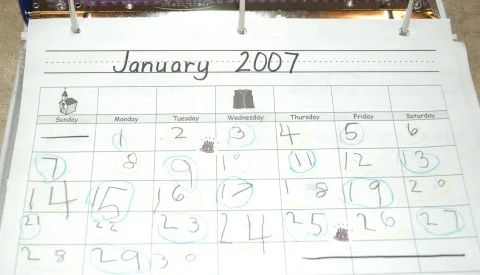 January 2007
Sunday Monday Tuesday Wednesday Thursday Friday Saturday
1 2 3 4 5 6
7 8 9 10 11 12 13
14 15 16 17 18 19 20
21 22 23 24 25 26 27
28 29 30